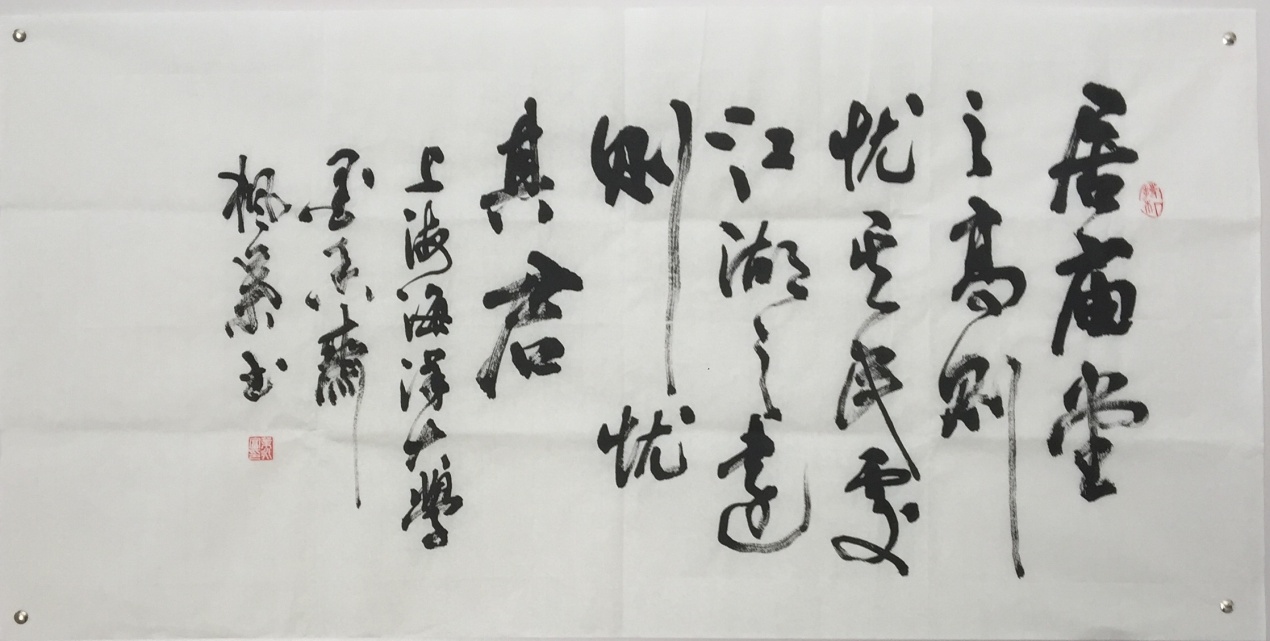 居庙堂
之高则
忧其民处
江湖之远
则忧
其君
上海海洋大学
墨香斋
枫叶书